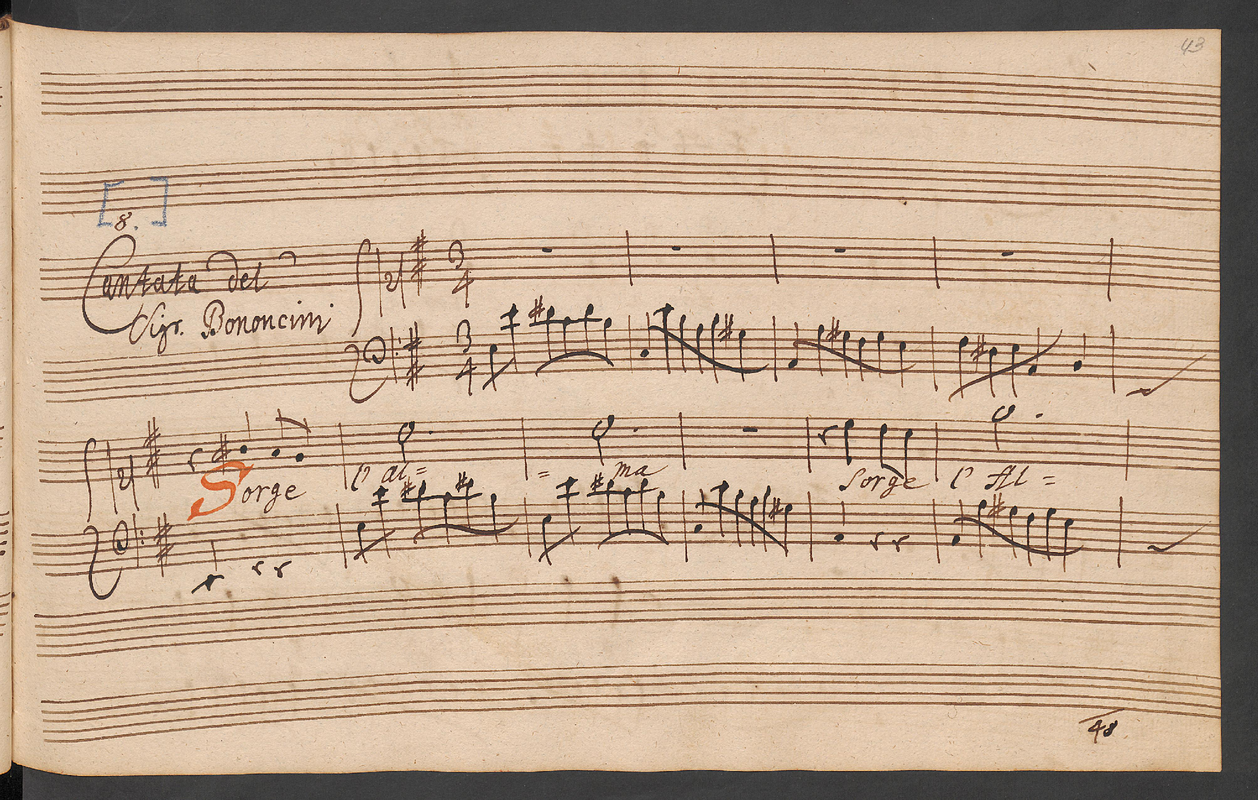 43
8.
Cantata del
Sigr. Bononcini
3
4
3
4
Sorge l'al= = ma Sorge l'Al=
48